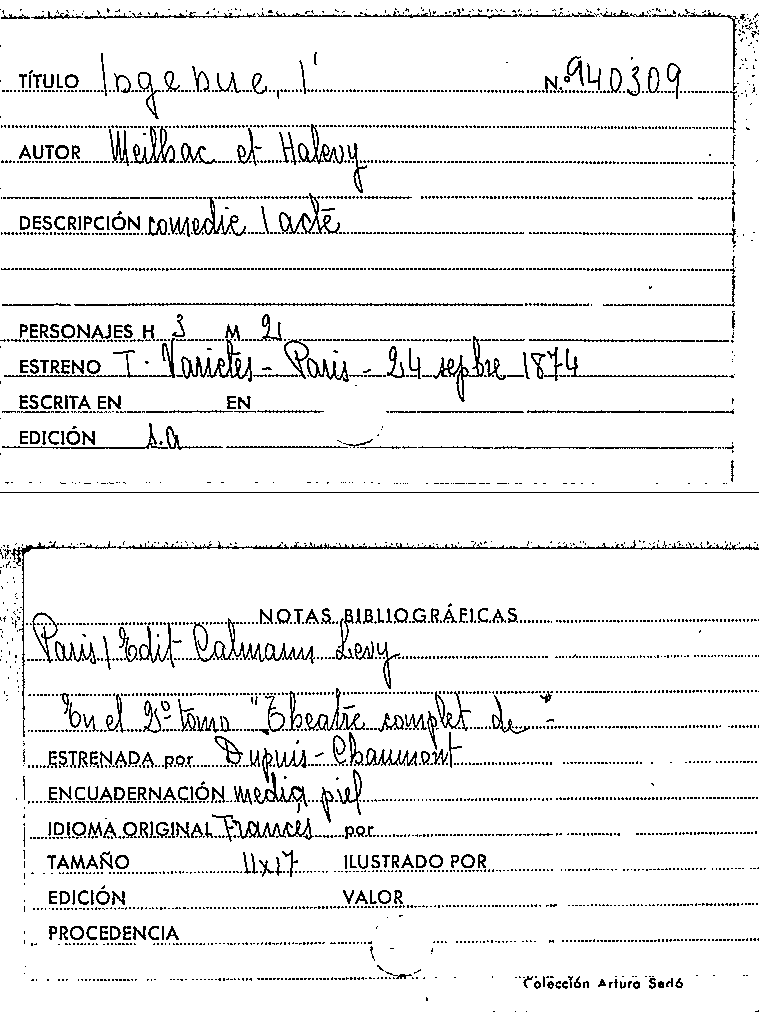 TÍTULO Ingenue, l' N.º 940309
AUTOR Meilhac et Halevy
DESCRIPCIÓN comedie 1 acte
PERSONAJES H 3 M 2
ESTRENO T. Varietes - Paris - 24 sepbre 1874
ESCRITA EN EN
EDICIÓN s.a
NOTAS BIBLIOGRÁFICAS
Paris / Edit Calmann Levy
En el 2º tomo "Theatre complet de" -
ESTRENADA por Dupuis - Chaumont
ENCUADERNACIÓN media piel
IDIOMA ORIGINAL Frances por
TAMAÑO 11x17 ILUSTRADO POR
EDICIÓN VALOR
PROCEDENCIA
Colección Arturo Sedó